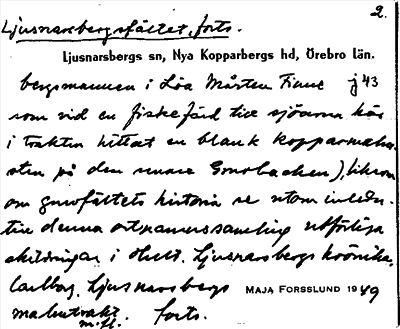 2.
Ljusnarsbergsfältet, forts.
Ljusnarsbergs sn, Nya Kopparbergs hd, Örebro län.
bergsmannen i Löa Mårten Finne j 43
som vid en fiskefärd till sjöarna här
i trakten hittat en blank kopparmalm-
sten på den senare Gruvbacken), liksom
om gruvfältets historia se utom inledn.
till denna ortnamnssamling utförliga
skildringar i Hult, Ljusnarsbergs krönika,
Carlborg, Ljusnarsbergs MAJA FORSSLUND 1949
malmtrakt m.fl. forts.